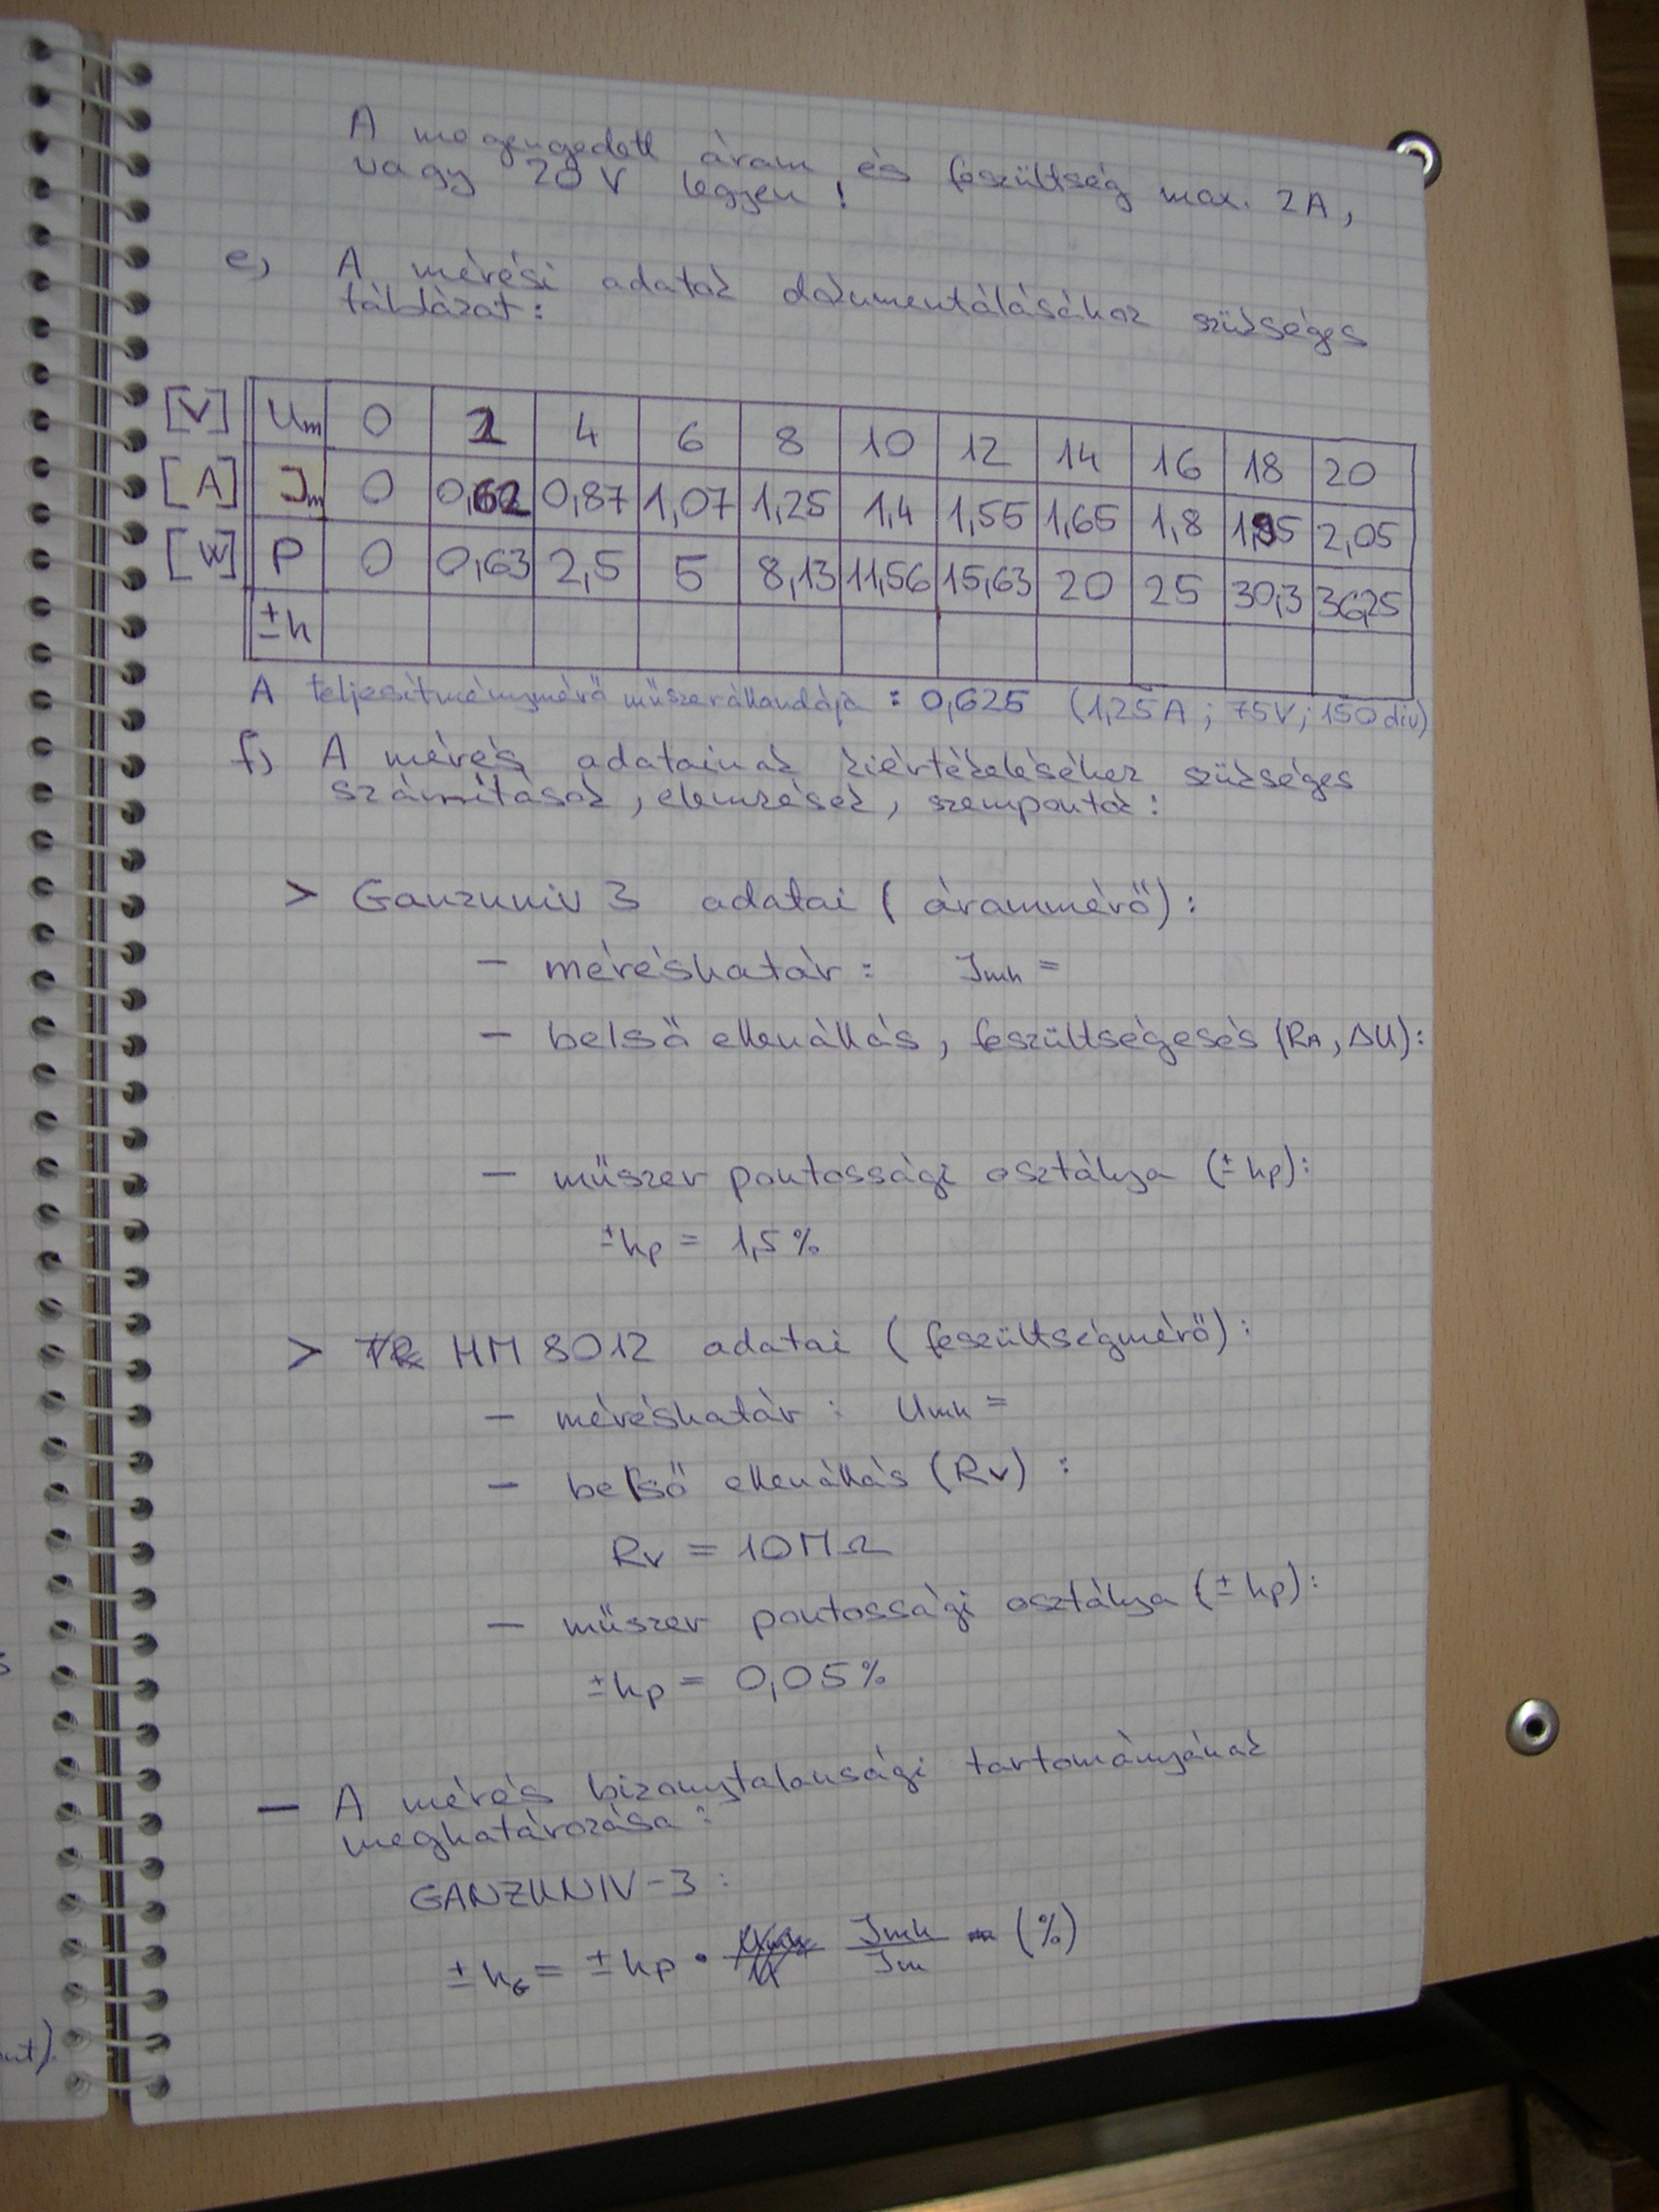 A megengedett áram és feszültség max. 2A,
vagy 20V legyen!
e) A mérési adatok dokumentálásához szükséges
táblázat:
[V] Um 0 2 4 6 8 10 12 14 16 18 20
[A] Im 0 0,62 0,87 1,07 1,25 1,4 1,55 1,65 1,8 1,95 2,05
[W] P 0 0,63 2,5 5 8,13 11,56 15,63 20 25 30,3 36,25
±h
A teljesítménymérő műszerállandója : 0,625 (1,25A ; 75V ; 150 div)
f) A mérés adatainak kiértékeléséhez szükséges
számítások, elemzések, szempontok:
> Ganzuniv 3 adatai (árammérő):
- méréshatár: Imh =
- belső ellenállás, feszültségesés (RA, ΔU):
- műszer pontossági osztálya (±hp):
±hp = 1,5%
> HM 8012 adatai (feszültségmérő):
- méréshatár: Umh =
- belső ellenállás (Rv) :
Rv = 10MΩ
- műszer pontossági osztálya (±hp):
±hp = 0,05%
- A mérés bizonytalansági tartományának
meghatározása:
GANZUNIV-3:
±hG = ±hp · Imh/Im (%)